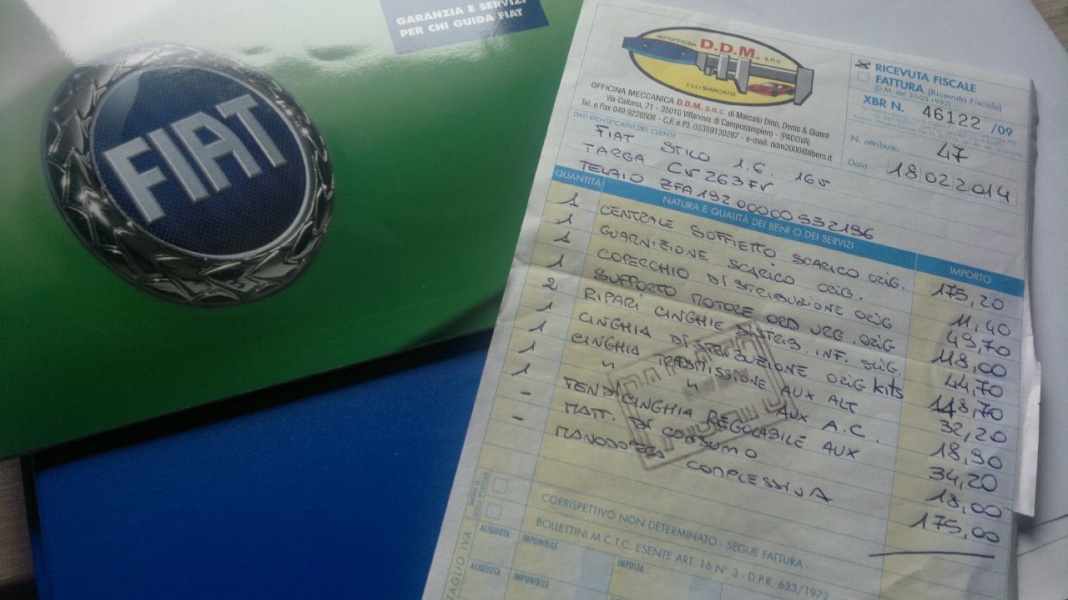 GARANZIA E SERVIZI
PER CHI GUIDA FIAT
FIAT
AUTOFFICINA D.D.M. s.n.c.
F.LLI MARCATO
OFFICINA MECCANICA D.D.M. s.n.c. di Marcato Dino, Denis & Gianni
Via Caltana, 71 - 35010 Villanova di Camposampiero - (PADOVA)
Tel. e Fax 049.9220508 - C.F. e P.I. 03359130287 - e-mail: ddm2000@libero.it
RICEVUTA FISCALE
FATTURA (Ricevuta Fiscale)
XBR N. 46122 /09
N. attribuito 47
Data 18 02 2014
DATI IDENTIFICATIVI DEL CLIENTE
FIAT STILO 1.6. 16V
TARGA CV263FV
TELAIO ZFA19200000552196
QUANTITÀ NATURA E QUALITÀ DEI BENI O DEI SERVIZI IMPORTO
1 CENTRALE SOFFIETTO SCARICO ORIG. 175,20
1 GUARNIZIONE SCARICO ORIG. 11,40
1 COPERCHIO DISTRIBUZIONE ORIG 49,70
1 SUPPORTO MOTORE ORD VRG. ORIG 118,00
2 RIPARI CINGHIE DISTRIB. INF. ORIG 44,70
1 CINGHIA DISTRIBUZIONE ORIG KITS 148,70
1 CINGHIA TRASMISSIONE AUX ALT 32,20
1 " " AUX A.C. 18,90
1 TENDICINGHIA REGOLABILE AUX 34,20
- MATT. DI CONSUMO 18,00
- MANODOPERA COMPLESSIVA 175,00
CORRISPETTIVO NON DETERMINATO - SEGUE FATTURA
BOLLETTINI M.C.T.C. ESENTE ART. 16 N° 3 - D.P.R. 633/1972
ALIQUOTA IMPONIBILE IMPOSTA
ALIQUOTA IMPONIBILE
TAGLIO IVA